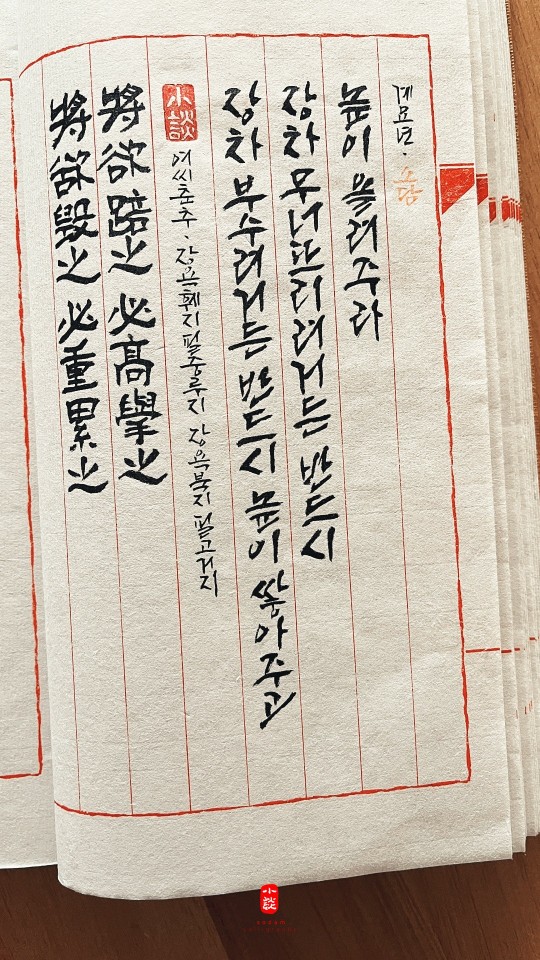 將欲毀之 必重累之
將欲踣之 必高擧之
小談
여씨춘추 · 장욕훼지 필중루지 장욕북지 필고거지
장차 부수려거든 반드시 높이 쌓아주고
장차 무너뜨리려거든 반드시
높이 올려주라
계묘년 · 소담
小談